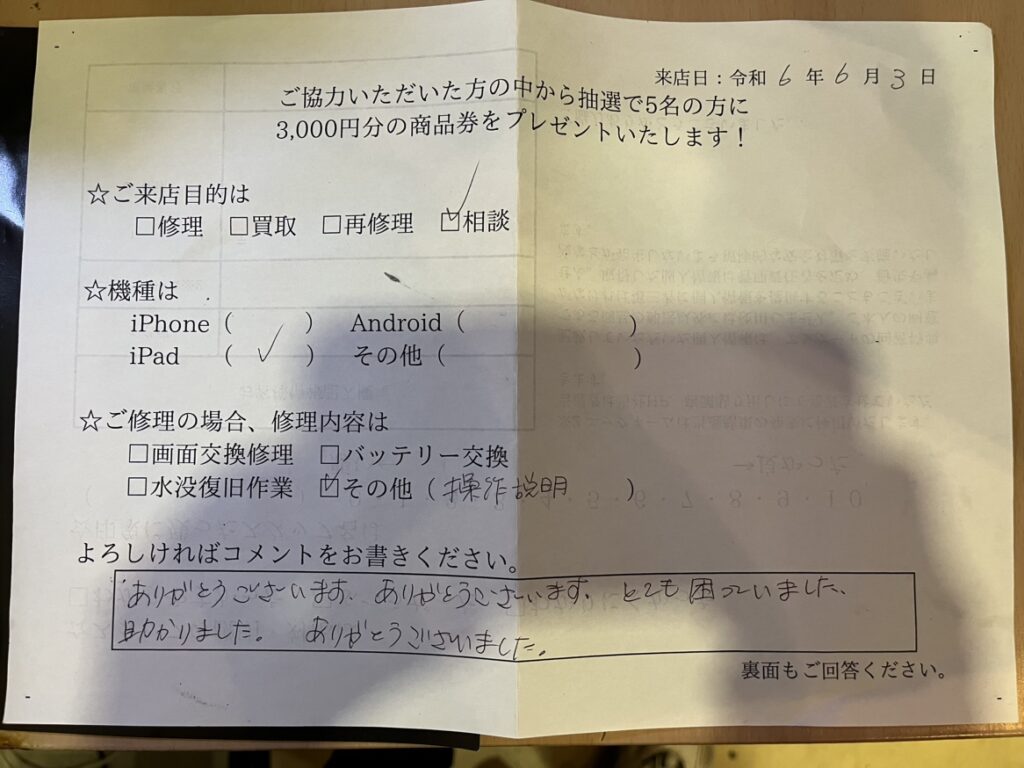 来店日：令和 6 年 6 月 3 日
ご協力いただいた方の中から抽選で5名の方に
3,000円分の商品券をプレゼントいたします！
☆ご来店目的は
□修理 □買取 □再修理 ☑相談
☆機種は
iPhone（ ） Android（ ）
iPad （ ✓ ） その他（ ）
☆ご修理の場合、修理内容は
□画面交換修理 □バッテリー交換
□水没復旧作業 ☑その他（操作説明 ）
よろしければコメントをお書きください。
ありがとうございます、ありがとうございます、とても困っていました、
助かりました。 ありがとうございました。
裏面もご回答ください。